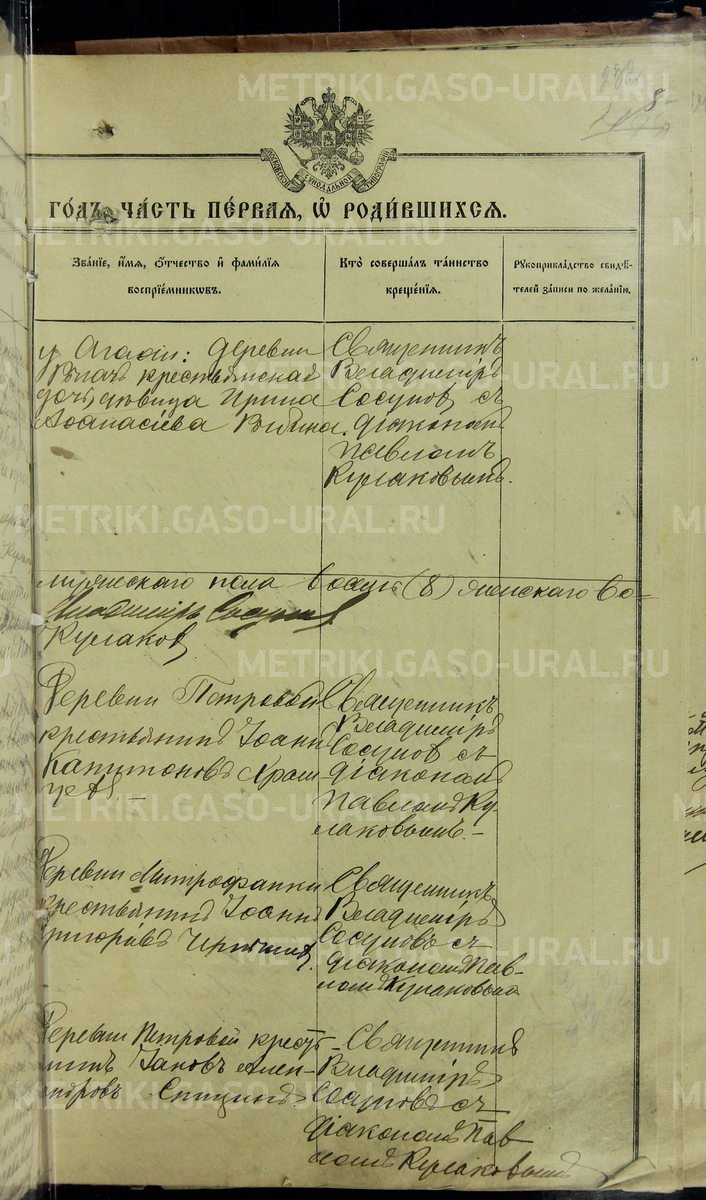 8
МОСКОВСКОЙ СѴНОДАЛЬНОЙ ТИПОГРАФІИ
ГО́ДЪ, ЧА́СТЬ ПЕ́РВАЯ, Ѡ҆ РОДИ́ВШИХСЯ.
Зва́нїе, и҆́мѧ, ѻ҆́тчество и҆ фами́лїѧ
воспрїе́мникѡвъ.
Кто̀ соверша́лъ та́инство
креще́нїѧ.
Рꙋкоприкла́дство свидѣ́-
телей за́писи по жела́нїю.
у Агафіи: деревни
крестьянская
дочь девица Ирина
Аѳанасіева
Священникъ
Владиміръ
Сосуновъ съ
діакономъ
Павломъ
Кулаковымъ.
женскаго пола восемь (8) женскаго
Владиміръ Сосуновъ
Кулаковъ
Деревни Петровой
крестьянинъ Іоаннъ
Капитоновъ
Священникъ
Владиміръ
Сосуновъ съ
діакономъ
Павломъ Ку-
лаковымъ.-
Деревни Митрофанки
крестьянинъ Іоаннъ
Григорьевъ
Священникъ
Владиміръ
Сосуновъ съ
діакономъ Пав-
ломъ Кулаковымъ
Деревни Петровой кресть-
нинъ Іаковъ Алек-
андровъ Спицынъ
Священникъ
Владиміръ
Сосуновъ съ
діакономъ Пав-
ломъ Кулаковымъ
METRIKI.GASO-URAL.RU